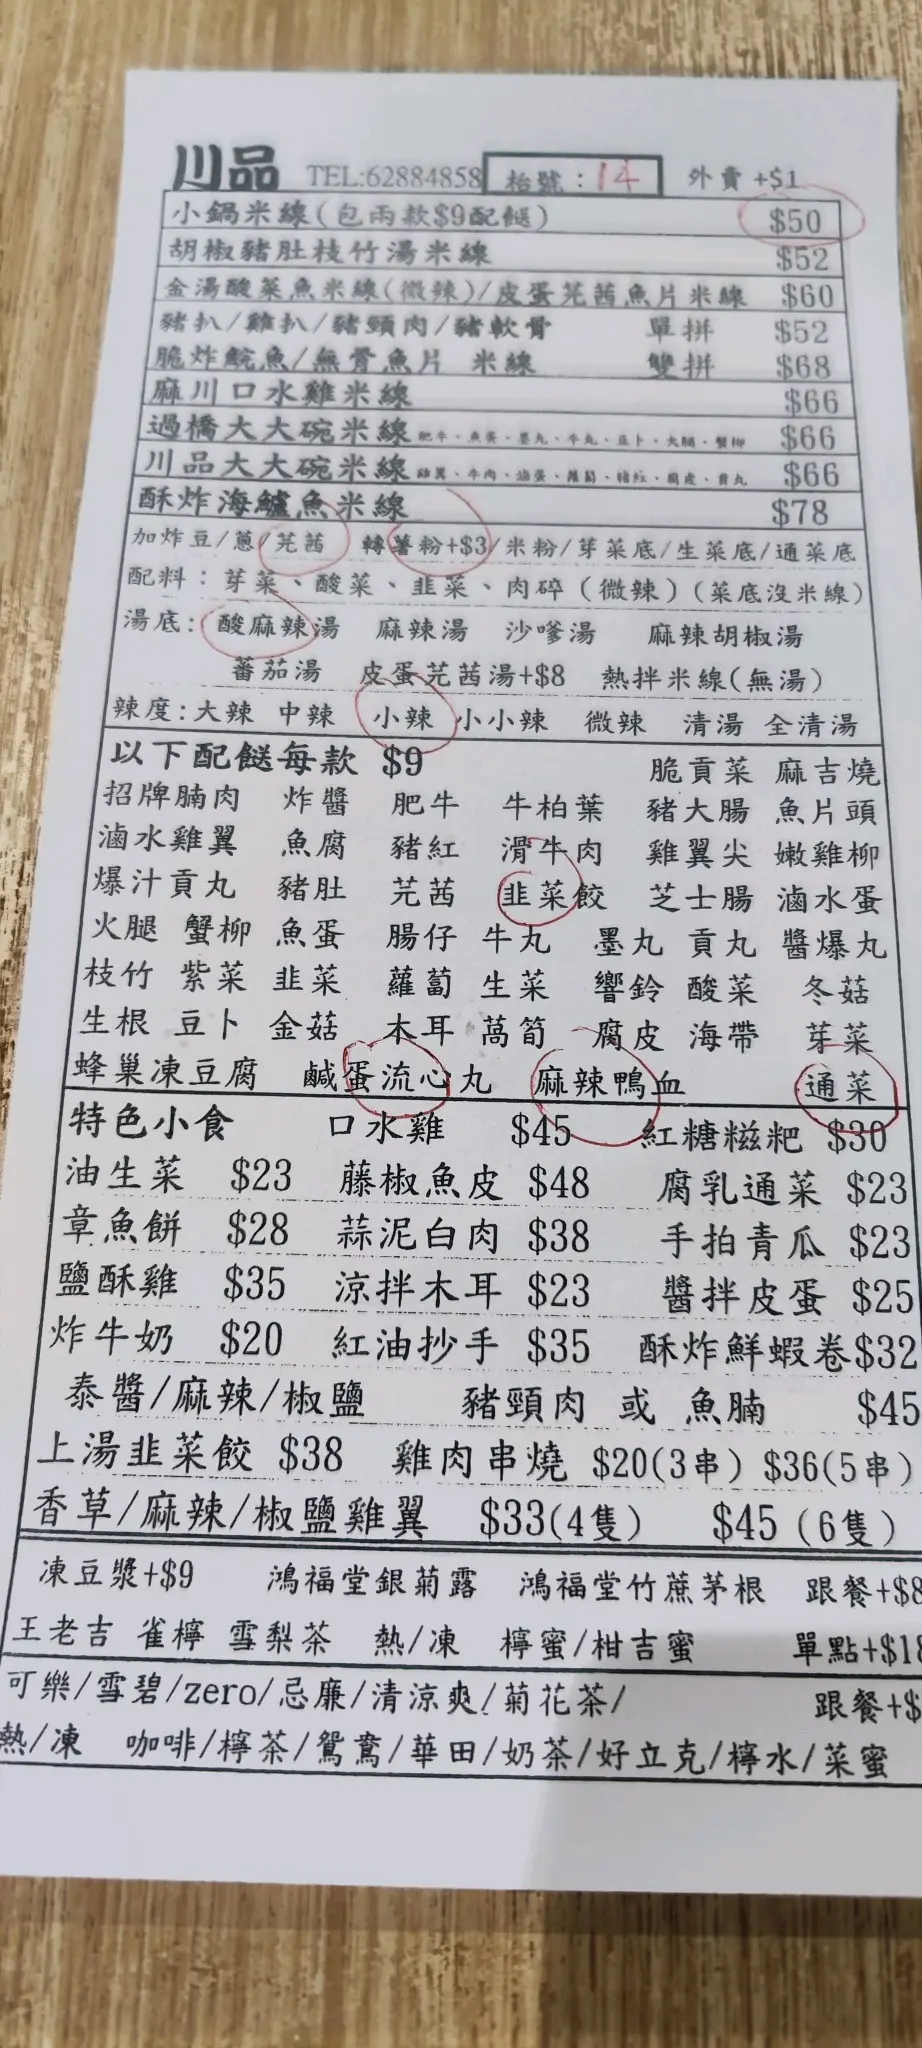 川品 TEL:62884858 枱號:14 外賣+$1
小鍋米線(包兩款$9配餸) $50
胡椒豬肚枝竹湯米線 $52
金湯酸菜魚米線(微辣)/皮蛋芫茜魚片米線 $60
豬扒/雞扒/豬頸肉/豬軟骨 單拼 $52
脆炸鯇魚/無骨魚片 米線 雙拼 $68
麻川口水雞米線 $66
過橋大大碗米線 肥牛、魚蛋、墨丸、牛丸、豆卜、火腿、蟹柳 $66
川品大大碗米線 $66
酥炸海鱸魚米線 $78
加炸豆/蔥/芫茜 轉薯粉+$3/米粉/芽菜底/生菜底/通菜底
配料:芽菜、酸菜、韭菜、肉碎(微辣)(菜底沒米線)
湯底:酸麻辣湯 麻辣湯 沙嗲湯 麻辣胡椒湯
蕃茄湯 皮蛋芫茜湯+$8 熱拌米線(無湯)
辣度:大辣 中辣 小辣 小小辣 微辣 清湯 全清湯
以下配餸每款 $9 脆貢菜 麻吉燒
招牌腩肉 炸醬 肥牛 牛柏葉 豬大腸 魚片頭
滷水雞翼 魚腐 豬紅 滑牛肉 雞翼尖 嫩雞柳
爆汁貢丸 豬肚 芫茜 韭菜餃 芝士腸 滷水蛋
火腿 蟹柳 魚蛋 腸仔 牛丸 墨丸 貢丸 醬爆丸
枝竹 紫菜 韭菜 蘿蔔 生菜 響鈴 酸菜 冬菇
生根 豆卜 金菇 木耳 萵筍 腐皮 海帶 芽菜
蜂巢凍豆腐 鹹蛋流心丸 麻辣鴨血 通菜
特色小食 口水雞 $45 紅糖糍粑 $30
油生菜 $23 藤椒魚皮 $48 腐乳通菜 $23
章魚餅 $28 蒜泥白肉 $38 手拍青瓜 $23
鹽酥雞 $35 涼拌木耳 $23 醬拌皮蛋 $25
炸牛奶 $20 紅油抄手 $35 酥炸鮮蝦卷$32
泰醬/麻辣/椒鹽 豬頸肉 或 魚腩 $45
上湯韭菜餃 $38 雞肉串燒 $20(3串) $36(5串)
香草/麻辣/椒鹽雞翼 $33(4隻) $45(6隻)
凍豆漿+$9 鴻福堂銀菊露 鴻福堂竹蔗茅根 跟餐+$8
王老吉 雀檸 雪梨茶 熱/凍 檸蜜/柑吉蜜 單點+$18
可樂/雪碧/zero/忌廉/清涼爽/菊花茶/ 跟餐+$
熱/凍 咖啡/檸茶/鴛鴦/華田/奶茶/好立克/檸水/菜蜜